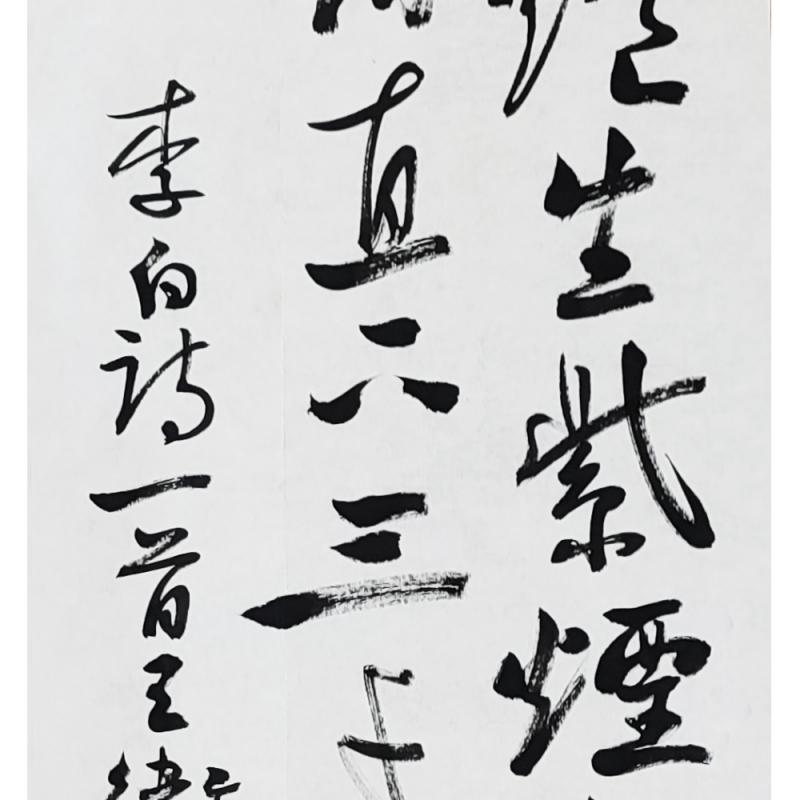 生紫煙
直下三千
李白詩一首王